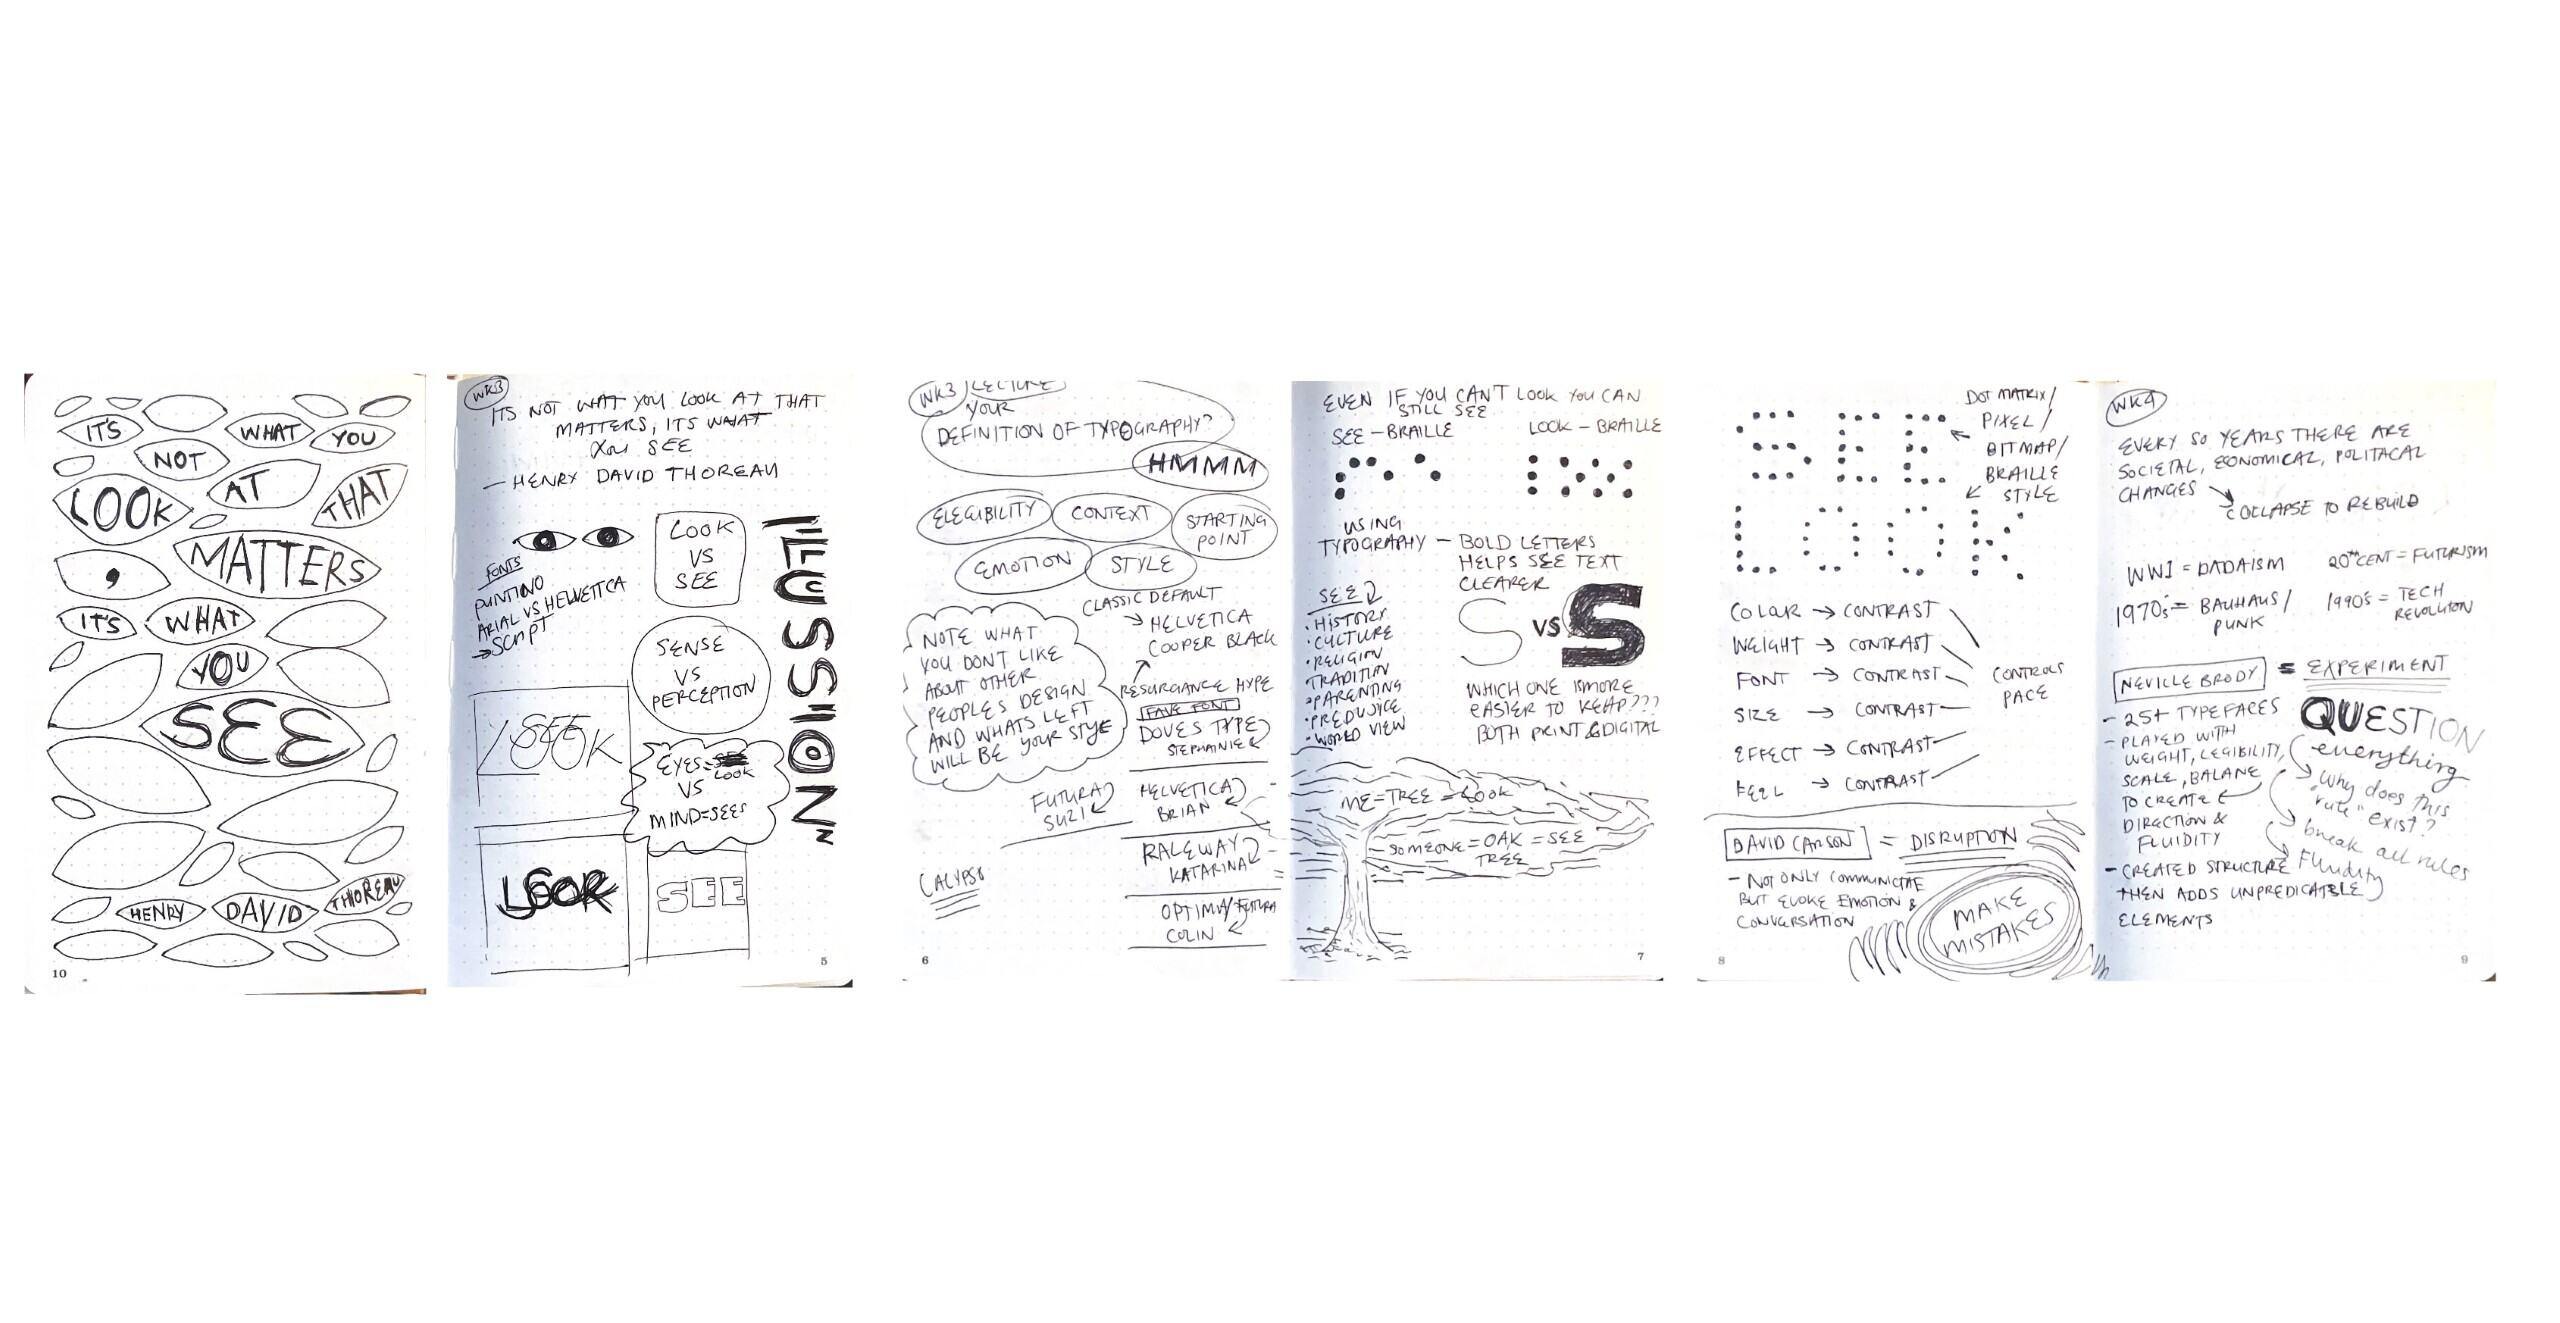 IT'S WHAT YOU
NOT
LOOK AT THAT
MATTERS
,
IT'S WHAT
YOU
SEE
HENRY DAVID THOREAU
10
WK3
ITS NOT WHAT YOU LOOK AT THAT
MATTERS, ITS WHAT
YOU SEE
— HENRY DAVID THOREAU
LOOK
VS
SEE
ILLUSSION
FONTS
PUNTINO
ARIAL VS HELVETICA
→ SCRIPT
SENSE
VS
PERCEPTION
SEE
LOOK
EYES =
LOOK
VS
MIND=SEES
LOOK
SEE
5
WK3 LECTURE
YOUR
DEFINITION OF TYPOGRAPHY?
HMMM
ELEGIBILITY CONTEXT STARTING
POINT
EMOTION STYLE
CLASSIC DEFAULT
→ HELVETICA
COOPER BLACK
RESURGANCE HYPE
NOTE WHAT
YOU DONT LIKE
ABOUT OTHER
PEOPLES DESIGN
AND WHATS LEFT
WILL BE YOUR STYLE
FAVE FONT
DOVES TYPE
STEPHANIE
FUTURA
SUZI
HELVETICA
BRIAN
RALEWAY
KATARINA
CALYPSO
OPTIMA/FUTURA
COLIN
6
EVEN IF YOU CAN'T LOOK YOU CAN
STILL SEE
SEE – BRAILLE LOOK – BRAILLE
USING
TYPOGRAPHY – BOLD LETTERS
HELPS SEE TEXT
CLEARER
SEE
• HISTORY
• CULTURE
• RELIGION
TRADITION
• PARENTING
• PREDUJICE
• WORLD VIEW
S VS S
WHICH ONE IS MORE
EASIER TO READ???
BOTH PRINT & DIGITAL
ME = TREE = LOOK
SOMEONE = OAK = SEE
TREE
7
SEE
LOOK
DOT MATRIX/
PIXEL/
BITMAP/
BRAILLE
STYLE
COLOUR → CONTRAST
WEIGHT → CONTRAST
FONT → CONTRAST
SIZE → CONTRAST
EFFECT → CONTRAST
FEEL → CONTRAST
CONTROLS
PACE
DAVID CARSON = DISRUPTION
– NOT ONLY COMMUNICTAE
BUT EVOKE EMOTION &
CONVERSATION
MAKE
MISTAKES
8
WK4
EVERY 50 YEARS THERE ARE
SOCIETAL, ECONOMICAL, POLITACAL
CHANGES
COLLAPSE TO REBUILD
WWI = DADAISM 20TH CENT = FUTURISM
1970's = BAUHAUS/
PUNK
1990's = TECH
REVOLUTION
NEVILLE BRODY = EXPERIMENT
– 25+ TYPEFACES
– PLAYED WITH
WEIGHT, LEGIBILITY,
SCALE, BALANE
TO CREATE
DIRECTION &
FLUIDITY
– CREATED STRUCTURE
THEN ADDS UNPREDICATBLE
ELEMENTS
QUESTION
everything
Why does this
"rule" exist?
break all rules
Fluidity
9